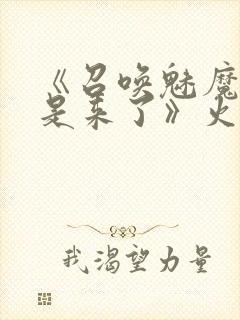 《召唤魅魔
是来了》火
我渴望力量